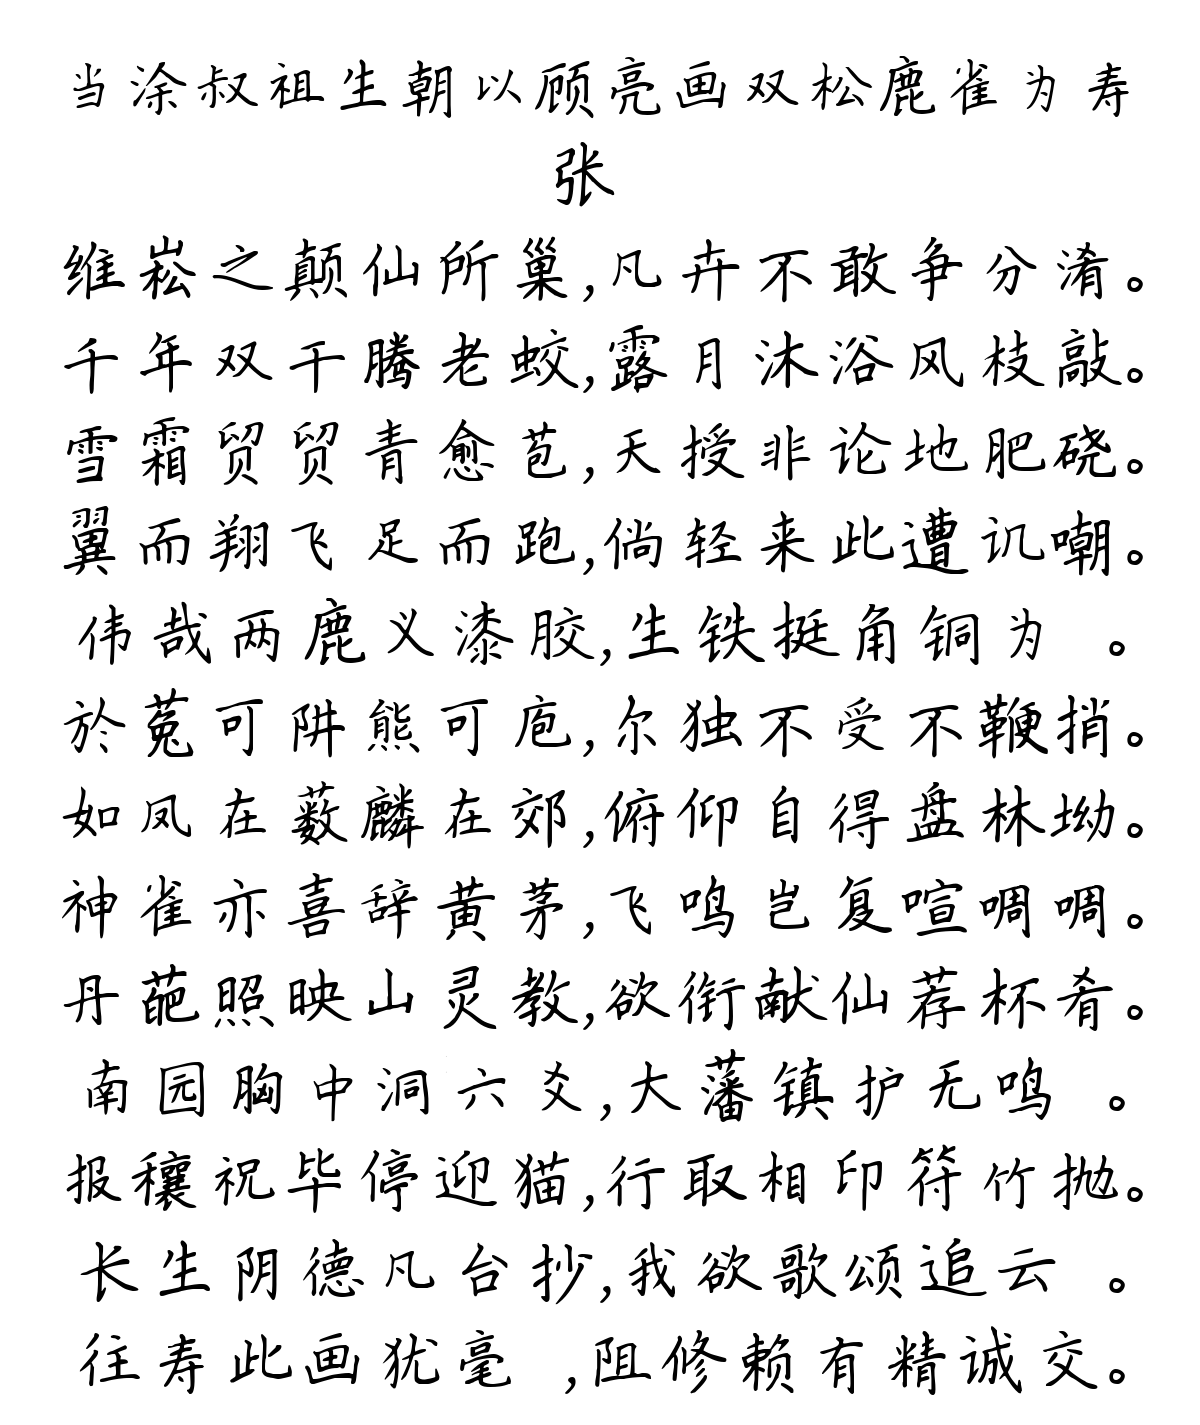 当涂叔祖生朝以顾亮画双松鹿雀为寿
张
维崧之颠仙所巢,凡卉不敢争分淆。
千年双干腾老蛟,露月沐浴风枝敲。
雪霜贸贸青愈苞,天授非论地肥硗。
翼而翔飞足而跑,倘轻来此遭讥嘲。
伟哉两鹿义漆胶,生铁挺角铜为 。
於菟可阱熊可庖,尔独不受不鞭捎。
如凤在薮麟在郊,俯仰自得盘林坳。
神雀亦喜辞黄茅,飞鸣岂复喧啁啁。
丹葩照映山灵教,欲衔献仙荐杯肴。
南园胸中洞六爻,大藩镇护无鸣 。
报穰祝毕停迎猫,行取相印符竹抛。
长生阴德凡台抄,我欲歌颂追云 。
往寿此画犹毫 ,阻修赖有精诚交。